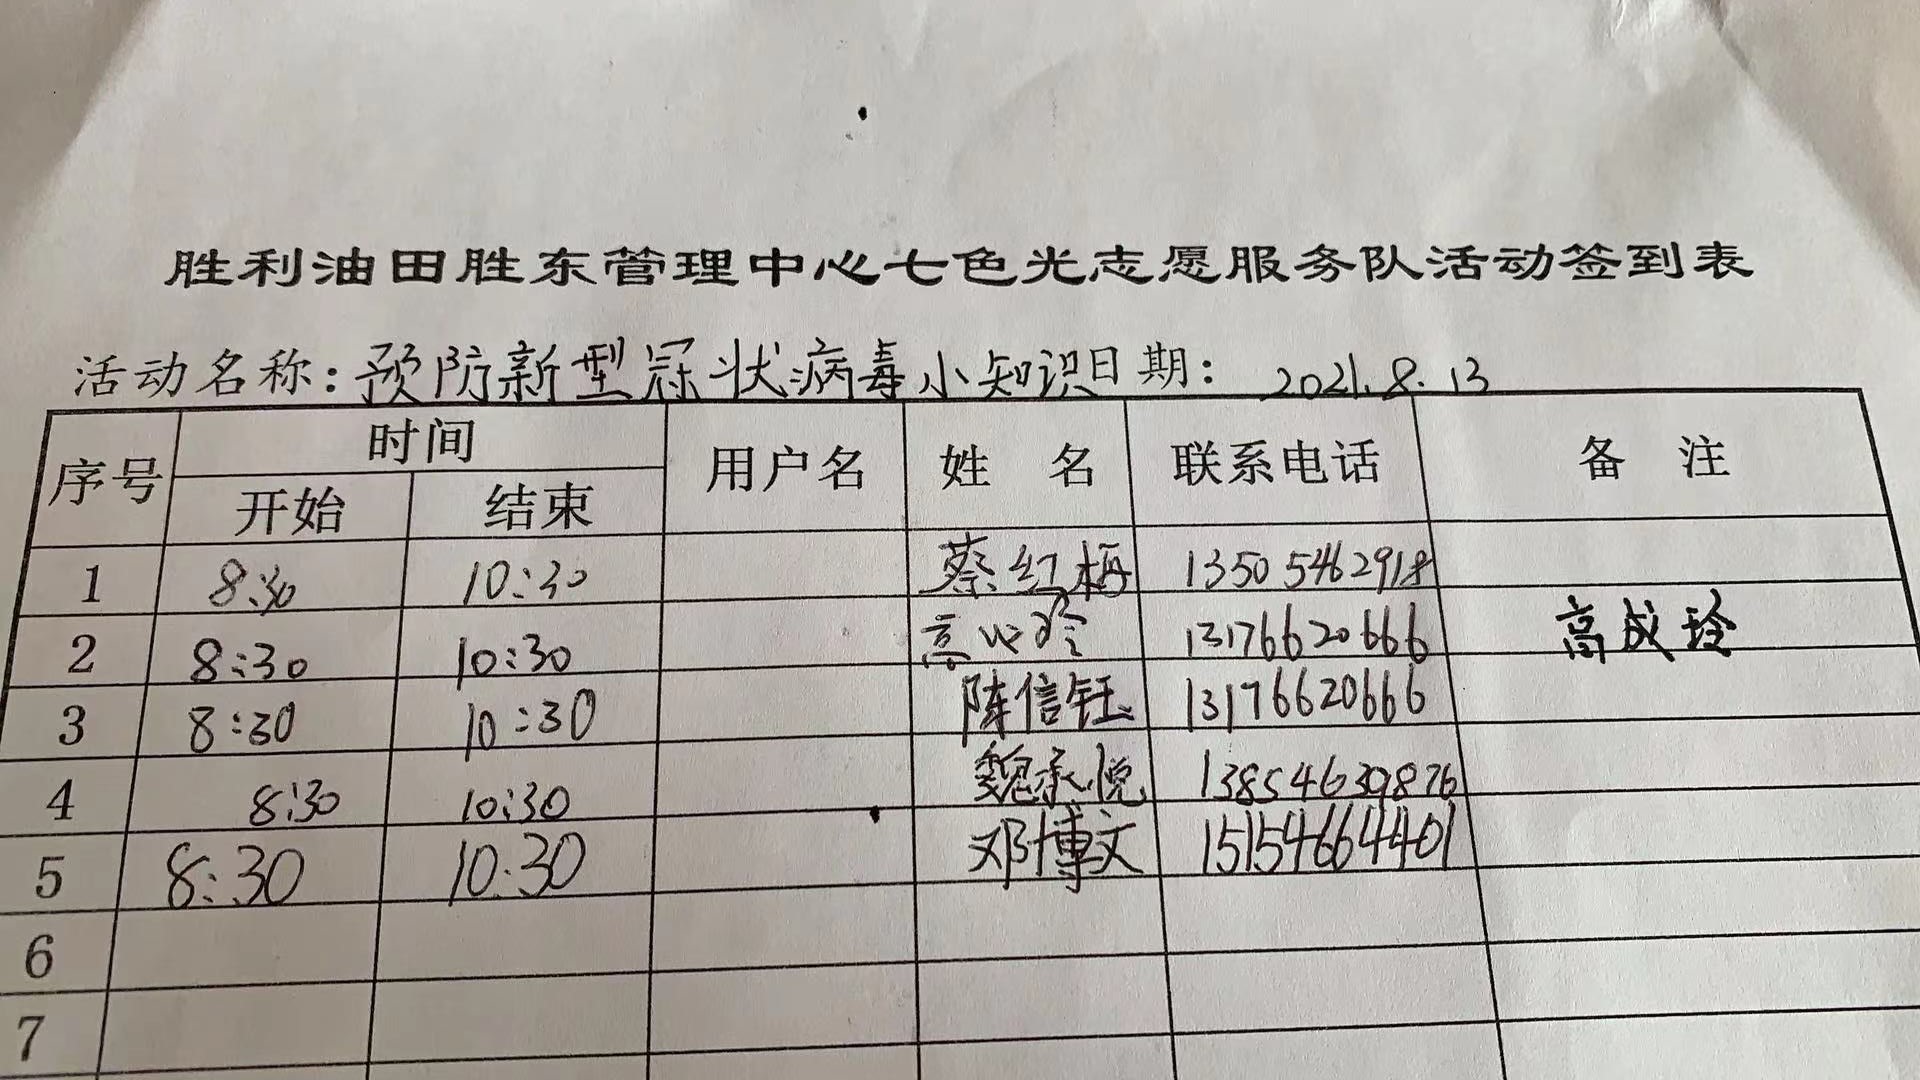 胜利油田胜东管理中心七色光志愿服务队活动签到表
活动名称：预防新型冠状病毒小知识日期： 2021.8.13
序号 时间 用户名 姓 名 联系电话 备 注
开始 结束
1 8:30 10:30 蔡红梅 13505462918
2 8:30 10:30 13176620666 高成玲
3 8:30 10:30 陈信钰 13176620666
4 8:30 10:30 魏承悦 13854639876
5 8:30 10:30 邓博文 15154664401
6
7